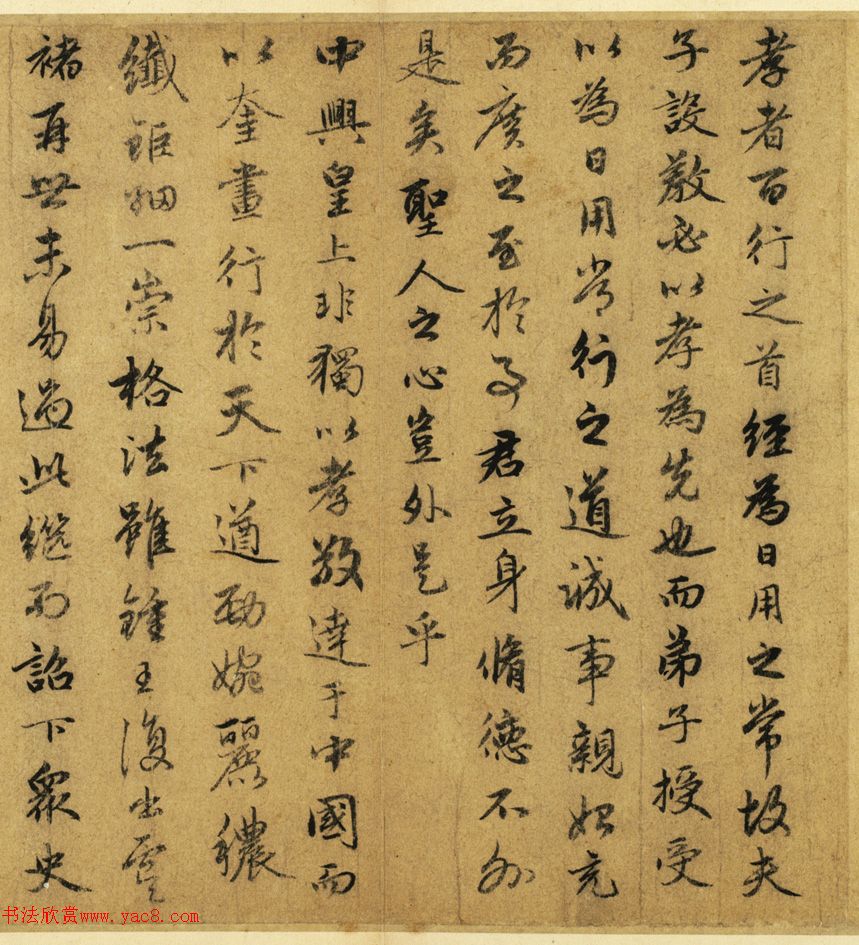 孝者百行之首經為日用之常故夫
子設教必以孝為先也而弟子授受
以為日用常行之道誠事親始充
而廣之至於事君立身脩德不外
是矣聖人之心豈外是乎
中興皇上非獨以孝敬達于中國而
以奎畫行於天下遒勁婉麗穠
纖鉅細一崇格法雖鍾王復出虞
褚再世未易過此繼而詔下眾史
书法欣赏www.yac8.com